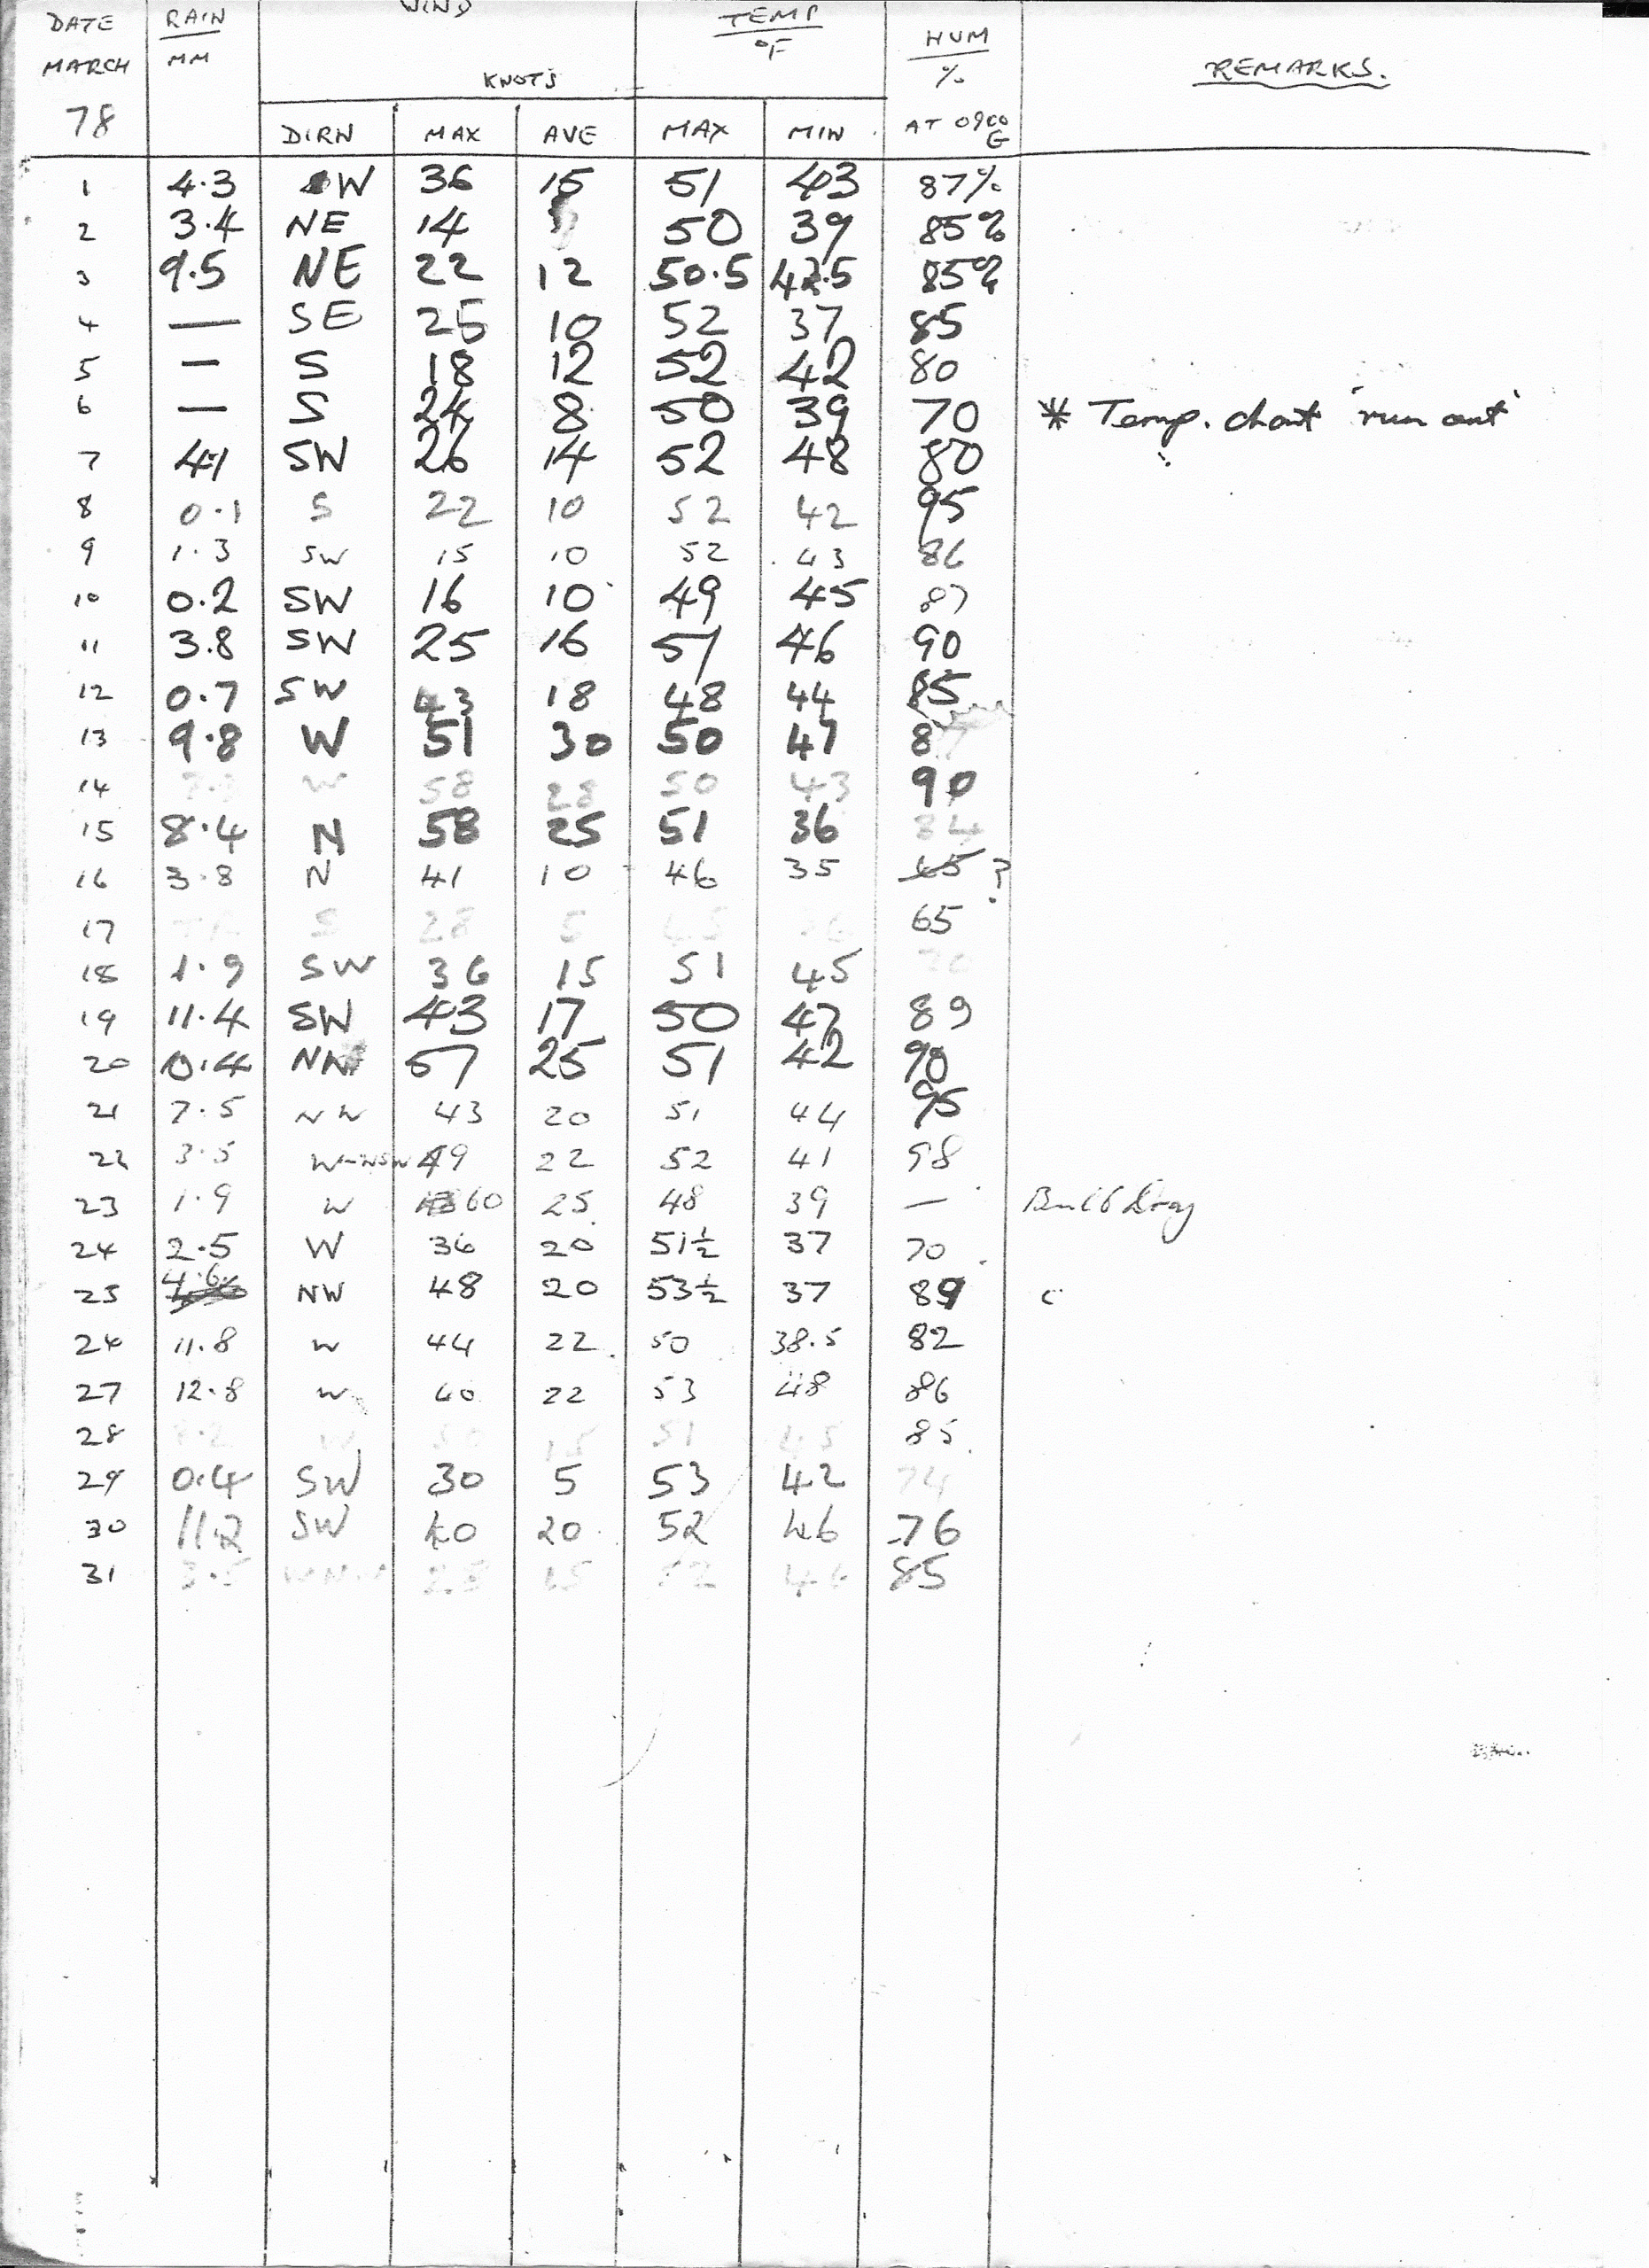 WIND
DATE RAIN TEMP HUM
MARCH MM °F % REMARKS.
KNOTS
78 DIRN MAX AVE MAX MIN AT 0900 G
1 4.3 W 36 15 51 43 87%
2 3.4 NE 14 50 39 85%
3 9.5 NE 22 12 50.5 42.5 85%
4 — SE 25 10 52 37 85
5 — S 18 12 52 42 80
6 — S 24 8 50 39 70 * Temp. chart 'run out'
7 4.1 SW 26 14 52 48 80
8 0.1 S 22 10 52 42 95
9 1.3 SW 15 10 52 43 86
10 0.2 SW 16 10 49 45 87
11 3.8 SW 25 16 51 46 90
12 0.7 SW 43 18 48 44 85
13 9.8 W 51 30 50 47
14 W 58 28 50 43 90
15 8.4 N 58 25 51 36 84
16 3.8 N 41 10 46 35 65 ?
17 S 28 5 45 36 65
18 1.9 SW 36 15 51 45 70
19 11.4 SW 43 17 50 47 89
20 0.4 NW 57 25 51 42 90
21 7.5 NW 43 20 51 44 95
22 3.5 W-WSW 49 22 52 41 98
23 1.9 W 60 25 48 39 —
24 2.5 W 36 20 51½ 37 70
25 4.6 NW 48 20 53½ 37 89
26 11.8 W 44 22 50 38.5 82
27 12.8 W 40 22 53 48 86
28 W 50 15 51 45 85
29 0.4 SW 30 5 53 42 74
30 11.2 SW 40 20 52 46 76
31 3.5 WNW 15 52 46 85